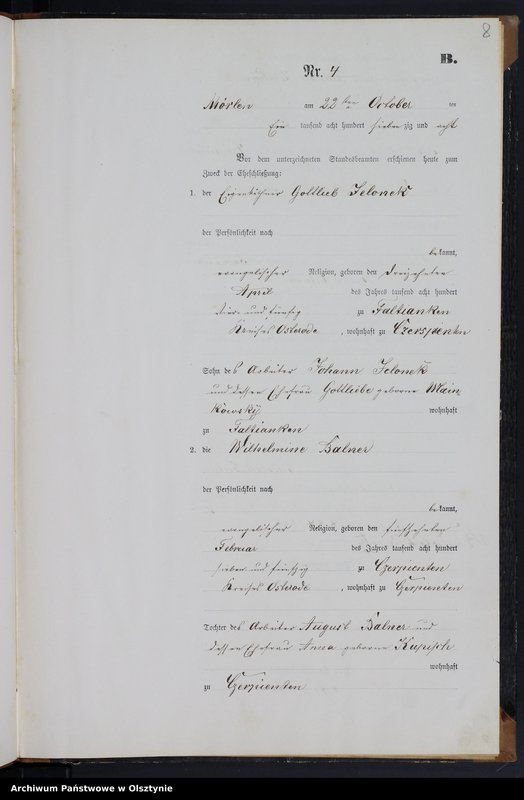 8
B.
Nr. 4
Mörlen am 22ten October tes
Ein tausend acht hundert siebenzig und acht
Vor dem unterzeichneten Standesbeamten erschienen heute zum
Zweck der Eheschließung:
1. der Eigenkäthner Gottlieb Jelonek
der Persönlichkeit nach
bekannt,
evangelischer Religion, geboren den dreizehnten
April des Jahres tausend acht hundert
vier und fünfzig zu Faltianken
Kreises Osterode, wohnhaft zu
Sohn des Arbeiter Johann Jelonek
und dessen Ehefrau Gottliebe geborne
wohnhaft
zu Faltianken
2. die Wilhelmine Balner
der Persönlichkeit nach
bekannt,
evangelischer Religion, geboren den fünfzehnten
Februar des Jahres tausend acht hundert
sieben und fünfzig zu Czerpienten
Kreises Osterode, wohnhaft zu Czerpienten
Tochter des Arbeiter August Balner und
dessen Ehefrau Anna geborne Kupisch
wohnhaft
zu Czerpienten
Archiwum Państwowe w Olsztynie